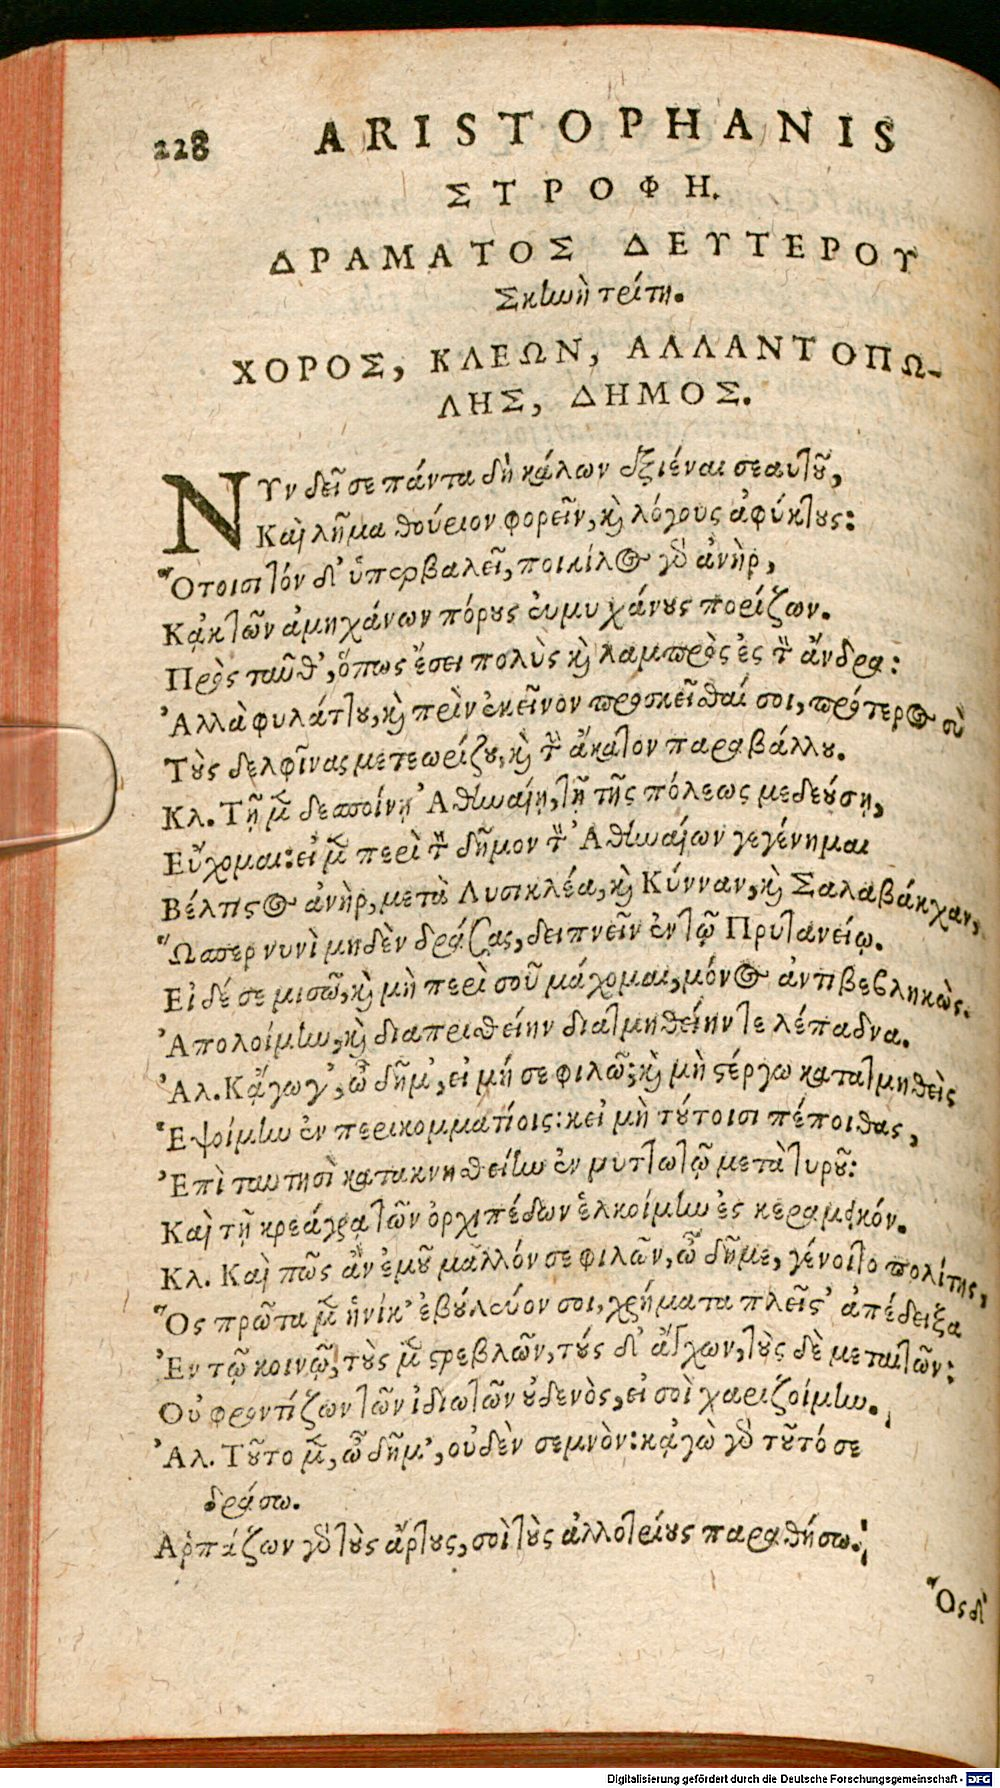 228 ARISTOPHANIS
ΣΤΡΟΦΗ.
ΔΡΑΜΑΤΟΣ ΔΕΥΤΕΡΟΥ
Σκηνὴ τρίτη.
ΧΟΡΟΣ, ΚΛΕΩΝ, ΑΛΛΑΝΤΟΠΩ-
ΛΗΣ, ΔΗΜΟΣ.
ΝΥν δεῖ σε πάντα δὴ κάλων ἐξιέναι σεαυτοῦ,
Καὶ λῆμα θούριον φορεῖν, καὶ λόγους ἀφύκτους:
Ὅτοισι τόνδ' ὑπερβαλεῖ, ποικίλος γὸ ἀνὴρ,
Κᾀκ τῶν ἀμηχάνων πόρους εὐμυχάνους πορίζων.
Πρὸς ταῦθ', ὅπως ἔσει πολὺς καὶ λαμπρὸς ἐς τὸν ἄνδρα:
Ἀλλὰ φυλάττου, καὶ πρὶν ἐκεῖνον προσκεῖσθαί σοι, πρότερος σὺ
Τοὺς δελφῖνας μετεωρίζου, καὶ τὴν ἄκατον παραβάλλου.
Κλ. Τῇ μὲν δεσποίνῃ Ἀθηναίῃ, τῇ τῆς πόλεως μεδεύσῃ,
Εὔχομαι: εἰ μὲν περὶ τὸν δῆμον τὸν Ἀθηναίων γεγένημαι
Βέλτιστος ἀνὴρ, μετὰ Λυσικλέα, καὶ Κύνναν, καὶ Σαλαβάκχαν,
Ὥσπερ νυνὶ μηδὲν δράσας, δειπνεῖν ἐν τῷ Πρυτανείῳ.
Εἰ δέ σε μισῶ, καὶ μὴ περὶ σοῦ μάχομαι, μόνος ἀντιβεβληκὼς.
Ἀπολοίμην, καὶ διαπρισθείην διατμηθείην τε λέπαδνα.
Ἀλ. Κᾄγωγ', ὦ δῆμ', εἰ μή σε φιλῶ; καὶ μὴ στέργω κατατμηθεὶς
Ἑψοίμην ἐν περικομματίοις: κεἰ μὴ τούτοισι πέποιθας,
Ἐπὶ ταυτησὶ κατακνησθείην ἐν μυττωτῷ μετὰ τυροῦ:
Καὶ τῇ κρεάγρᾳ τῶν ὀρχιπέδων ἑλκοίμην ἐς κεραμεικόν.
Κλ. Καὶ πῶς ἂν ἐμοῦ μᾶλλόν σε φιλῶν, ὦ δῆμε, γένοιτο πολίτης,
Ὃς πρῶτα μὲν ἡνίκ' ἐβούλευόν σοι, χρήματα πλεῖστ' ἀπέδειξα
Ἐν τῷ κοινῷ, τοὺς μὲν στρεβλῶν, τούς δ' ἄγχων, τοὺς δὲ μεταιτῶν:
Οὐ φροντίζων τῶν ἰδιωτῶν οὐδενὸς, εἰ σοὶ χαριζοίμην.
Ἀλ. Τοῦτο μὲν, ὦ δῆμ', οὐδὲν σεμνὸν: κᾀγὼ γὸ τοῦτό σε
δράσω.
Ἁρπάζων γὸ τοὺς ἄρτους, σοὶ τοὺς ἀλλοτρίους παραθήσω.
Ὃς δ'
Digitalisierung gefördert durch die Deutsche Forschungsgemeinschaft - DFG